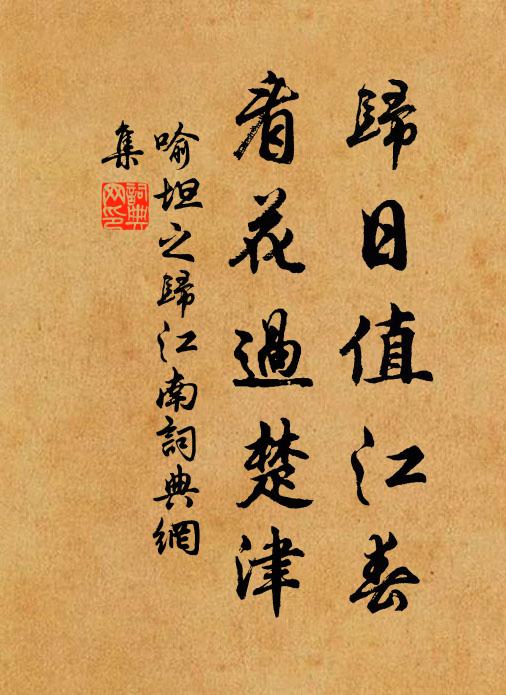 歸日值江春
看花過楚津
喻坦之歸江南詞典網
集
詞典網印